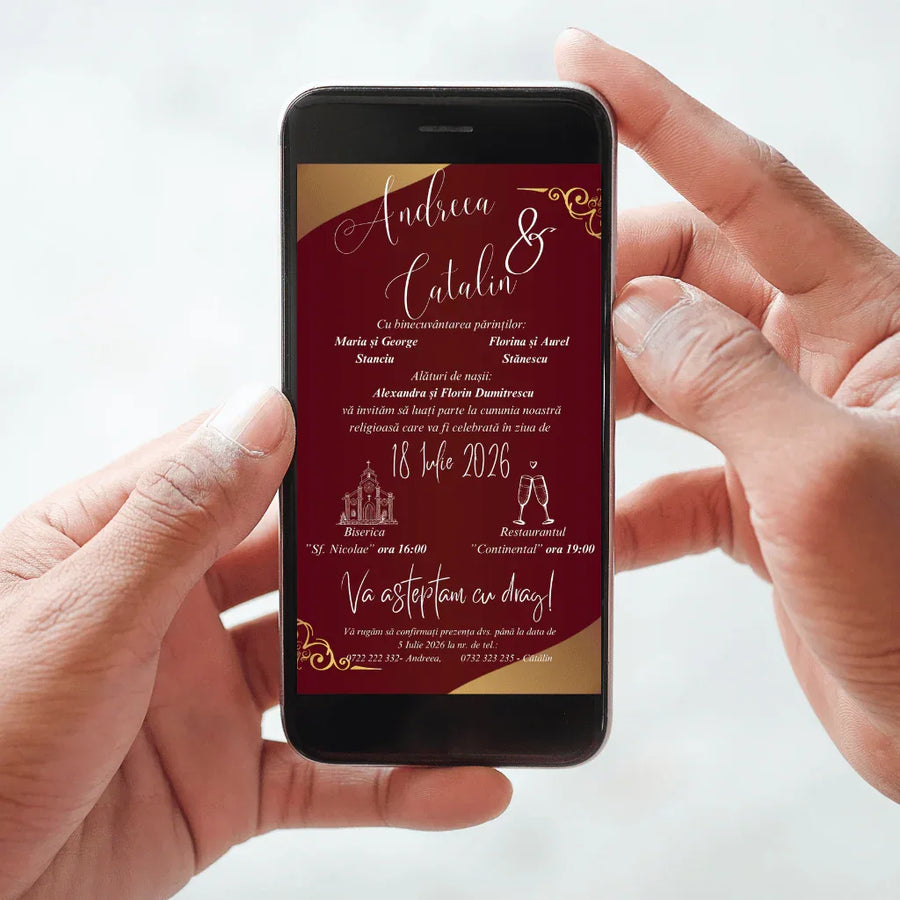 Andreea
&
Catalin
Cu binecuvântarea părinților:
Maria și George Florina și Aurel
Stanciu Stănescu
Alături de nașii:
Alexandra și Florin Dumitrescu
vă invităm să luați parte la cununia noastră
religioasă care va fi celebrată în ziua de
18 Iulie 2026
Biserica Restaurantul
”Sf. Nicolae” ora 16:00 ”Continental” ora 19:00
Va asteptam cu drag!
Vă rugăm să confirmați prezența dvs. până la data de
5 Iulie 2026 la nr. de tel.:
0722 222 332- Andreea, 0732 323 235 - Cătălin